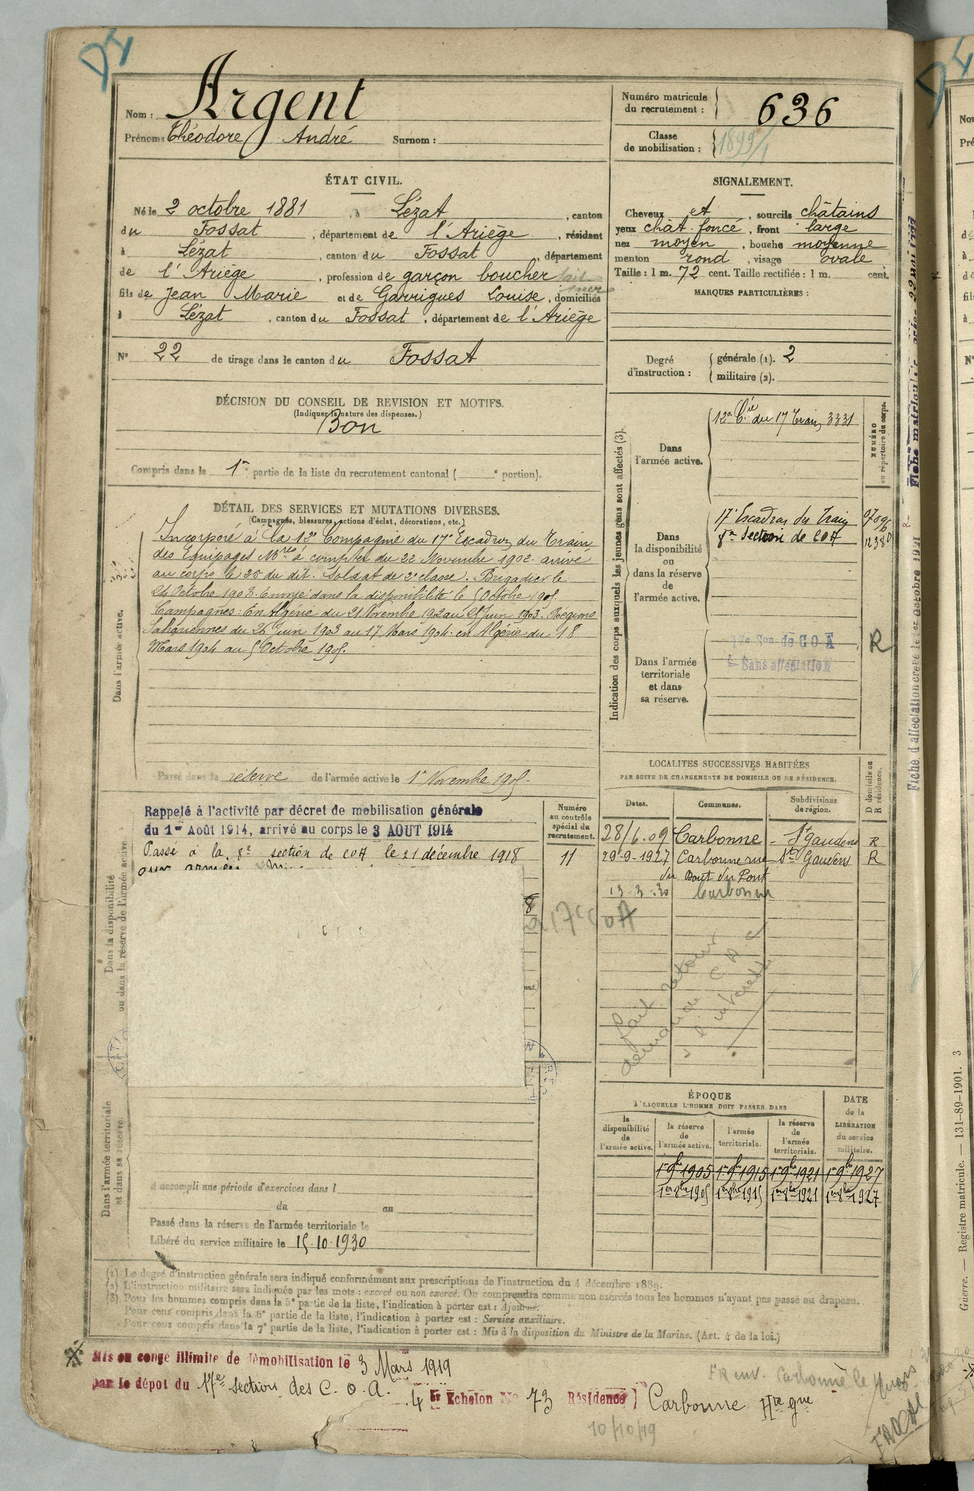 Nom : Argent
Prénoms Théodore André Surnom :
Numéro matricule du recrutement : 636
Classe de mobilisation : 1899/1
ÉTAT CIVIL.
Né le 2 octobre 1881, à Lézat, canton
du Fossat, département de l'Ariège, résidant
à Lézat, canton du Fossat, département
de l'Ariège, profession de garçon boucher
fils de Jean Marie et de Garrigues Louise, domiciliés
à Lézat, canton du Fossat, département de l'Ariège
N° 22 de tirage dans le canton du Fossat
SIGNALEMENT.
Cheveux et, sourcils châtains
yeux chât. foncé, front large
nez moyen, bouche moyenne
menton rond, visage ovale
Taille : 1 m. 72 cent. Taille rectifiée : 1 m. cent.
MARQUES PARTICULIÈRES :
Degré d'instruction : générale (1). 2
militaire (2).
DÉCISION DU CONSEIL DE REVISION ET MOTIFS.
(Indiquer la nature des dispenses.)
Bon
Compris dans la 1re partie de la liste du recrutement cantonal ( e portion).
DÉTAIL DES SERVICES ET MUTATIONS DIVERSES.
(Campagnes, blessures, actions d'éclat, décorations, etc.)
Dans l'armée active.
Incorporé à la 12e Compagnie du 17e Escadron du Train
des Equipages Mres à compter du 22 Novembre 1902 arrivé
au corps le 25 du dit. Soldat de 2e classe. Brigadier le
24 Octobre 1903. Envoyé dans la disponibilité le 5 Octobre 1905
Campagnes : En Algérie du 21 Novembre 1902 au 25 Juin 1903. Régions
Sahariennes du 26 Juin 1903 au 17 Mars 1904. en Algérie du 18
Mars 1904 au 5 Octobre 1905.
Passé dans la réserve de l'armée active le 1er Novembre 1905.
Indication des corps auxquels les jeunes gens sont affectés (3).
NUMÉRO au répertoire du corps.
Dans l'armée active.
12e Cie du 17 Train 3331
Dans la disponibilité ou dans la réserve de l'armée active.
17e Escadron du Train
8e Section de COA
Dans l'armée territoriale et dans sa réserve.
Son de COA
Sans affectation
R
LOCALITÉS SUCCESSIVES HABITÉES
PAR SUITE DE CHANGEMENTS DE DOMICILE OU DE RÉSIDENCE.
Dates. Communes. Subdivisions de région. D domicile ou R résidence.
28/6.09 Carbonne - St Gaudens R
29-9-1927 Carbonne rue St Gaudens R
du Bout du Pont
13-3-30 Carbonne
Dans la disponibilité ou dans la réserve de l'armée active.
Rappelé à l'activité par décret de mobilisation générale
du 1er Août 1914, arrivé au corps le 3 AOUT 1914
Passé à la 8e section de COA le 21 décembre 1918
Numéro au contrôle spécial du recrutement.
11
fait retour
demande
ÉPOQUE
À LAQUELLE L'HOMME DOIT PASSER DANS
la disponibilité de l'armée active.
la réserve de l'armée active.
l'armée territoriale.
la réserve de l'armée territoriale.
DATE de la LIBÉRATION du service militaire.
1er 9bre 1905 1er 9bre 1915 1er 9bre 1921 1er 9bre 1927
Dans l'armée territoriale et dans sa réserve.
A accompli une période d'exercices dans l
du au
Passé dans la réserve de l'armée territoriale le
Libéré du service militaire le 15.10.1930
(1) Le degré d'instruction générale sera indiqué conformément aux prescriptions de l'instruction du 4 décembre 1889.
(2) L'instruction militaire sera indiquée par les mots : exercé ou non exercé. On comprendra comme non exercés tous les hommes n'ayant pas passé au drapeau.
(3) Pour les hommes compris dans la 5e partie de la liste, l'indication à porter est : Ajourné.
Pour ceux compris dans la 6e partie de la liste, l'indication à porter est : Service auxiliaire.
Pour ceux compris dans la 7e partie de la liste, l'indication à porter est : Mis à la disposition du Ministre de la Marine. (Art. 4 de la loi.)
Mis en congé illimité de démobilisation le 3 Mars 1919
par le dépôt du 17e section des C.O.A.
4 Echelon No 73 Résidence Carbonne Hte Gne
10/10/19
Guerre. — Registre matricule. — 131-89-1901. 3